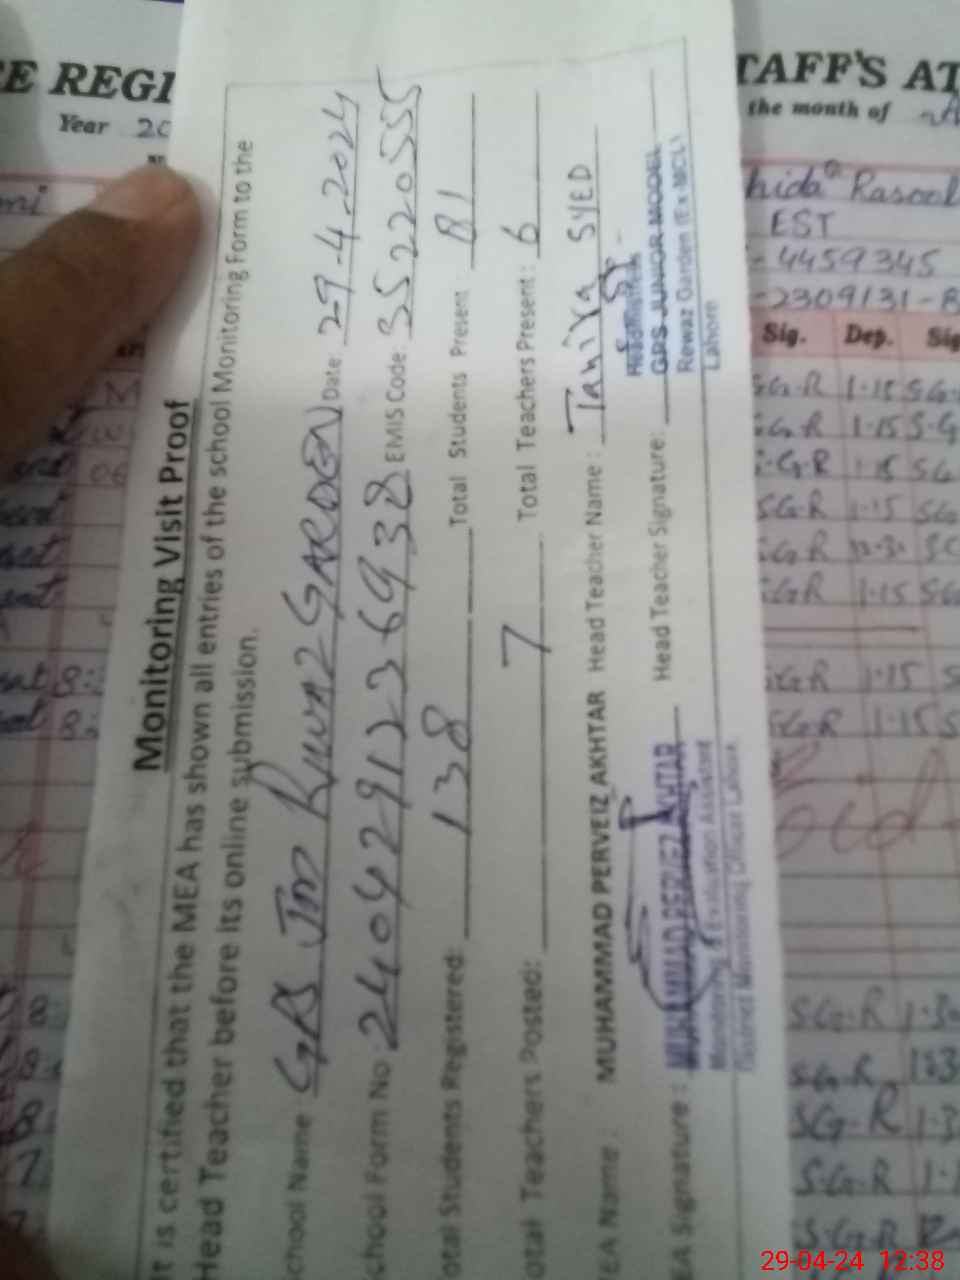 Monitoring Visit Proof
It is certified that the MEA has shown all entries of the school Monitoring Form to the
Head Teacher before its online submission.
chool Name GPS JM Rewaz GARDEN Date: 29-4-2024
chool Form No 2404291236938 EMIS Code: 35220555
otal Students Registered: 138 Total Students Present: 81
otal Teachers Posted: 7 Total Teachers Present: 6
EA Name: MUHAMMAD PERVEIZ AKHTAR Head Teacher Name: Taniya SYED
EA Signature: Head Teacher Signature:
MUHAMMAD PERVIEZ AKHTAR
Monitoring & Evaluation Assistant
District Monitoring Officer Lahore
Headmistress
GPS JUNIOR MODEL
Rewaz Garden (Ex-MCL)
Lahore
E REGI
Year 20
TAFF'S AT
the month of
hida Rasool
EST
-4459345
-2309131-8
Sig. Dep. Sig
SG-R 1-15 SG
SG-R 1-15 S-G
G-R 1-15 SG
SG-R 1-15 SG
SG-R
SG-R 1-15 SG
SG-R 1-15 S
SG-R 1-15 S
SG-R 1-30
SG-R
SG-R 1-3
S-G-R 1-1
S-G-R
29-04-24 12:38